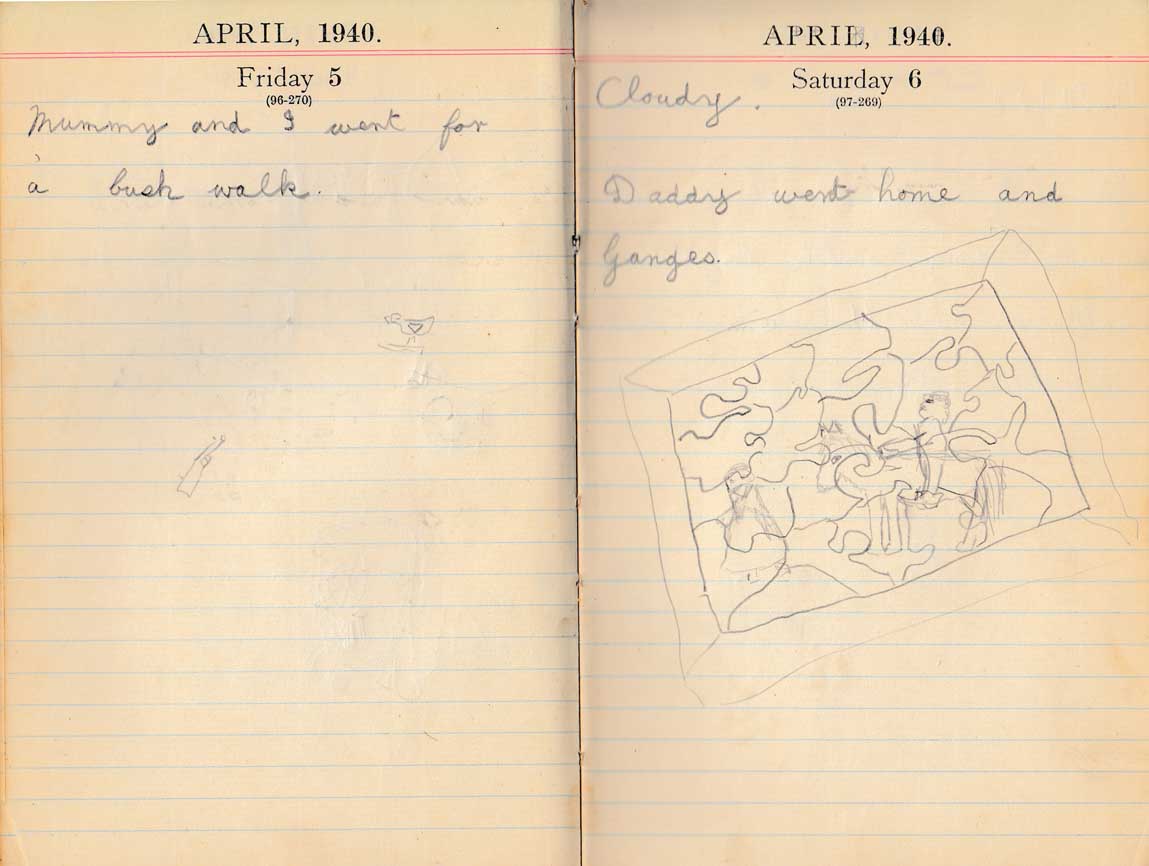 APRIL, 1940.
Friday 5
(96-270)
Mummy and I went for
a bush walk.
APRIL, 1940.
Saturday 6
(97-269)
Cloudy.
Daddy went home and
Ganges.